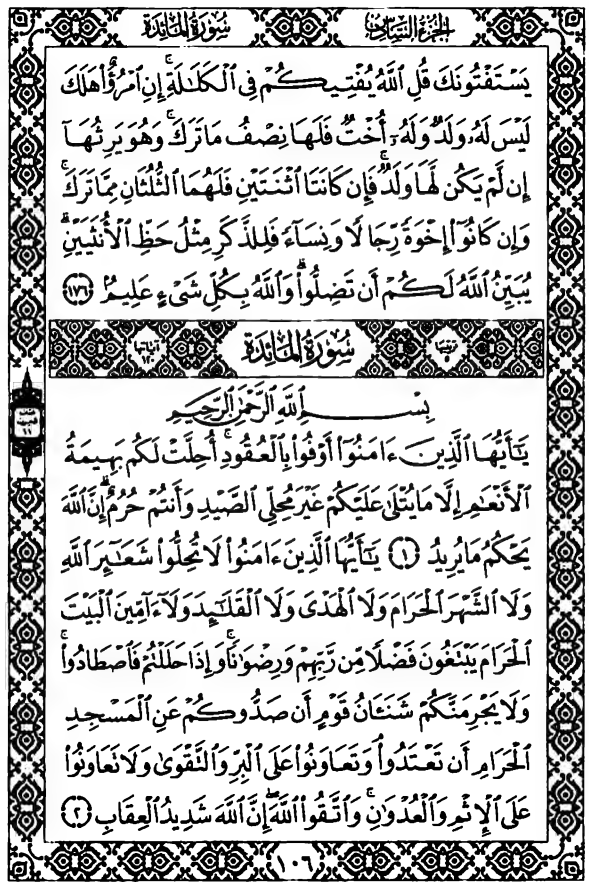 الجزء السادس سورة المائدة
يَسْتَفْتُونَكَ قُلِ ٱللَّهُ يُفْتِيكُمْ فِى ٱلْكَلَٰلَةِ ۚ إِنِ ٱمْرُؤٌا۟ هَلَكَ
لَيْسَ لَهُۥ وَلَدٌ وَلَهُۥٓ أُخْتٌ فَلَهَا نِصْفُ مَا تَرَكَ ۚ وَهُوَ يَرِثُهَآ
إِن لَّمْ يَكُن لَّهَا وَلَدٌ ۚ فَإِن كَانَتَا ٱثْنَتَيْنِ فَلَهُمَا ٱلثُّلُثَانِ مِمَّا تَرَكَ ۚ
وَإِن كَانُوٓا۟ إِخْوَةً رِّجَالًا وَنِسَآءً فَلِلذَّكَرِ مِثْلُ حَظِّ ٱلْأُنثَيَيْنِ ۗ
يُبَيِّنُ ٱللَّهُ لَكُمْ أَن تَضِلُّوا۟ ۗ وَٱللَّهُ بِكُلِّ شَىْءٍ عَلِيمٌۢ ١٧٦
ترتيبها ٥ سورة المائدة آياتها ١٢٠
بِسْمِ ٱللَّهِ ٱلرَّحْمَٰنِ ٱلرَّحِيمِ
يَٰٓأَيُّهَا ٱلَّذِينَ ءَامَنُوٓا۟ أَوْفُوا۟ بِٱلْعُقُودِ ۚ أُحِلَّتْ لَكُم بَهِيمَةُ
ٱلْأَنْعَٰمِ إِلَّا مَا يُتْلَىٰ عَلَيْكُمْ غَيْرَ مُحِلِّى ٱلصَّيْدِ وَأَنتُمْ حُرُمٌ ۗ إِنَّ ٱللَّهَ
يَحْكُمُ مَا يُرِيدُ ١ يَٰٓأَيُّهَا ٱلَّذِينَ ءَامَنُوا۟ لَا تُحِلُّوا۟ شَعَٰٓئِرَ ٱللَّهِ
وَلَا ٱلشَّهْرَ ٱلْحَرَامَ وَلَا ٱلْهَدْىَ وَلَا ٱلْقَلَٰٓئِدَ وَلَآ ءَآمِّينَ ٱلْبَيْتَ
ٱلْحَرَامَ يَبْتَغُونَ فَضْلًا مِّن رَّبِّهِمْ وَرِضْوَٰنًا ۚ وَإِذَا حَلَلْتُمْ فَٱصْطَادُوا۟ ۚ
وَلَا يَجْرِمَنَّكُمْ شَنَـَٔانُ قَوْمٍ أَن صَدُّوكُمْ عَنِ ٱلْمَسْجِدِ
ٱلْحَرَامِ أَن تَعْتَدُوا۟ ۘ وَتَعَاوَنُوا۟ عَلَى ٱلْبِرِّ وَٱلتَّقْوَىٰ ۖ وَلَا تَعَاوَنُوا۟
عَلَى ٱلْإِثْمِ وَٱلْعُدْوَٰنِ ۚ وَٱتَّقُوا۟ ٱللَّهَ ۖ إِنَّ ٱللَّهَ شَدِيدُ ٱلْعِقَابِ ٢
١٠٦